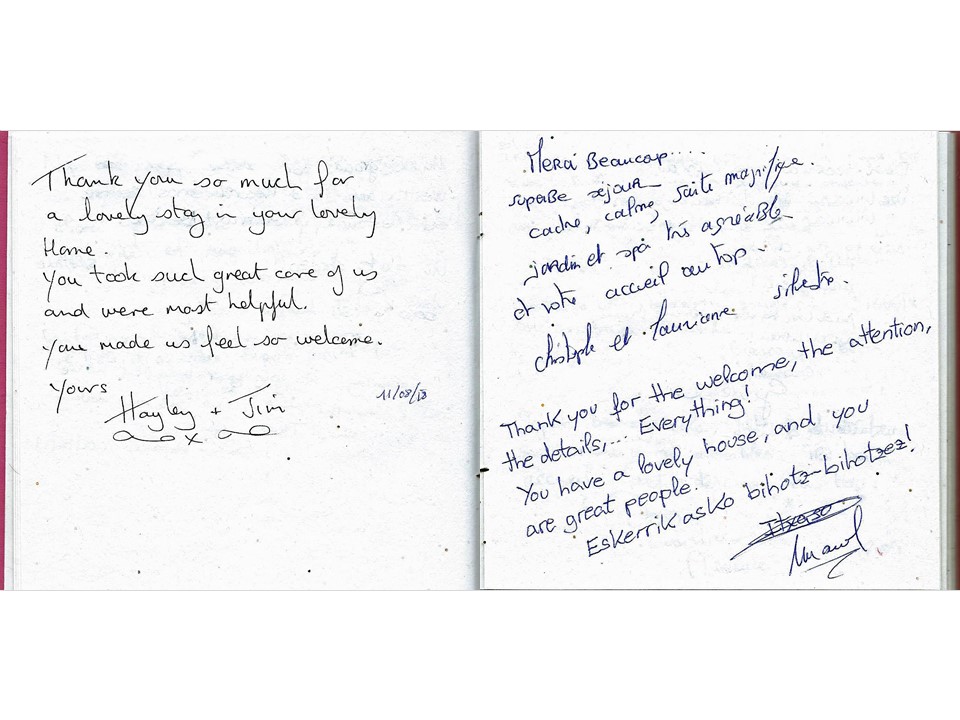 Thank you so much for
a lovely stay in your lovely
Home.
You took such great care of us
and were most helpful.
You made us feel so welcome.
Yours
Hayley + Jim
x
11/08/18
Merci Beaucoup....
superbe séjour
cadre, calme, suite magnifique.
jardin et spa très agréable
et votre accueil au top
christophe et silvestre.
Thank you for the welcome, the attention,
the details,... Everything!
You have a lovely house, and you
are great people.
Eskerrik asko bihotz-bihotzez!
Itxaso